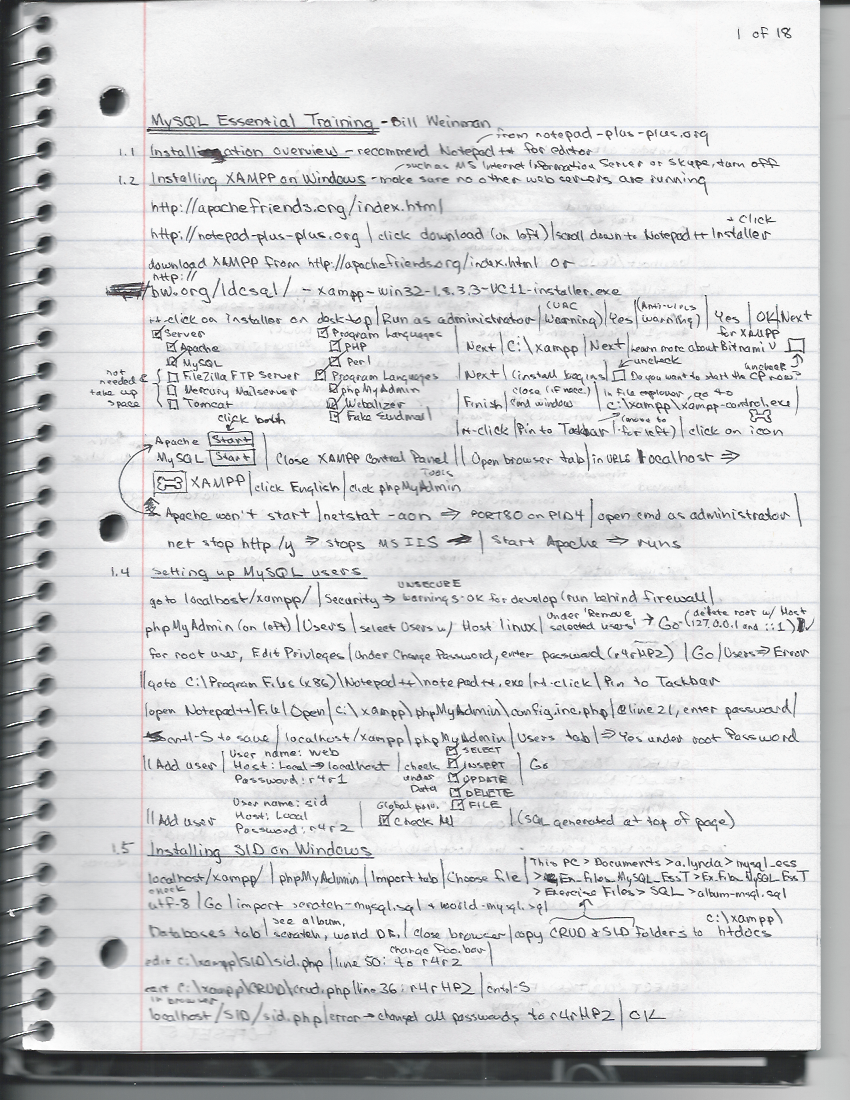 1 of 18
MySQL Essential Training - Bill Weinman
from notepad-plus-plus.org
1.1 Installation overview - recommend Notepad++ for editor
such as MS Internet Information Server or Skype, turn off
1.2 Installing XAMPP on Windows - make sure no other web servers are running
http://apachefriends.org/index.html
→ Click
http://notepad-plus-plus.org | click download (on left) | scroll down to Notepad++ Installer
download XAMPP from http://apachefriends.org/index.html or
http://
bw.org/ldcsql/ - xampp-win32-1.8.3.3-VC11-installer.exe
rt-click on installer on desktop | Run as administrator | (UAC Warning) | Yes | (Anti-virus warning) | Yes | OK | Next
☑ Server
☑ Apache
☑ MySQL
☐ FileZilla FTP Server
☐ Mercury Mailserver
☐ Tomcat
not needed & take up space
☑ Program Languages
☑ PHP
☑ Perl
☑ Program Languages
☑ phpMyAdmin
☑ Webalizer
☑ Fake Sendmail
for XAMPP
| Next | C:\xampp | Next | Learn more about Bitnami ☐
uncheck
| Next | (install begins) ☐ Do you want to start the CP now?
uncheck
| Finish | close (if nec.) cmd window | in file explorer, go to c:\xampp\xampp-control.exe
rt-click | Pin to Taskbar | (move to far left) | click on icon
click both
Apache Start
MySQL Start | Close XAMPP Control Panel || Open browser tab | in URL: localhost ⇒
Tools
XAMPP | click English | click phpMyAdmin
Apache won't start | netstat -aon ⇒ PORT80 on PID4 | open cmd as administrator |
net stop http /y ⇒ stops MS IIS → | Start Apache ⇒ runs
1.4 Setting up MySQL users
UNSECURE
goto localhost/xampp/ | Security ⇒ warnings-OK for develop (run behind firewall) |
phpMyAdmin (on left) | Users | select Users w/ Host linux | under 'Remove selected users' → Go (delete root w/ Host 127.0.0.1 and ::1)
for root user, Edit Privileges | Under Change Password, enter password (r4rHP2) | Go | Users ⇒ Error
|| goto C:\Program Files (x86)\Notepad++\notepad++.exe | rt-click | Pin to Taskbar
| open Notepad++ | File | Open | C:\xampp\phpMyAdmin\config.inc.php | @line 21, enter password |
cntl-S to save / localhost/xampp | phpMyAdmin | Users tab | ⇒ Yes under root Password
|| Add user | User name: web
Host: Local → localhost
Password: r4r1
| check under Data
☑ SELECT
☑ INSERT
☑ UPDATE
☑ DELETE
☑ FILE
| Go
|| Add user
User name: sid
Host: Local
Password: r4r2
| Global priv.
☑ Check All
| (SQL generated at top of page)
1.5 Installing SID on Windows
localhost/xampp/ | phpMyAdmin | Import tab | Choose file | This PC > Documents > a.lynda > mysql-ess
> Ex-Files MySQL EssT > Ex.Files MySQL EssT
> Exercise Files > SQL > album-mysql.sql
check
utf-8 | Go | import scratch-mysql.sql & world-mysql.sql
Databases tab | see album, scratch, world DB. | close browser | copy CRUD & SID folders to c:\xampp\ htdocs
change foo.bar
edit C:\xampp\SID\sid.php | line 50: to r4r2
edit C:\xampp\CRUD\crud.php | line 36: r4rHP2 | cntl-S
in browser
localhost/SID/sid.php | error → changed all passwords to r4rHP2 | OK